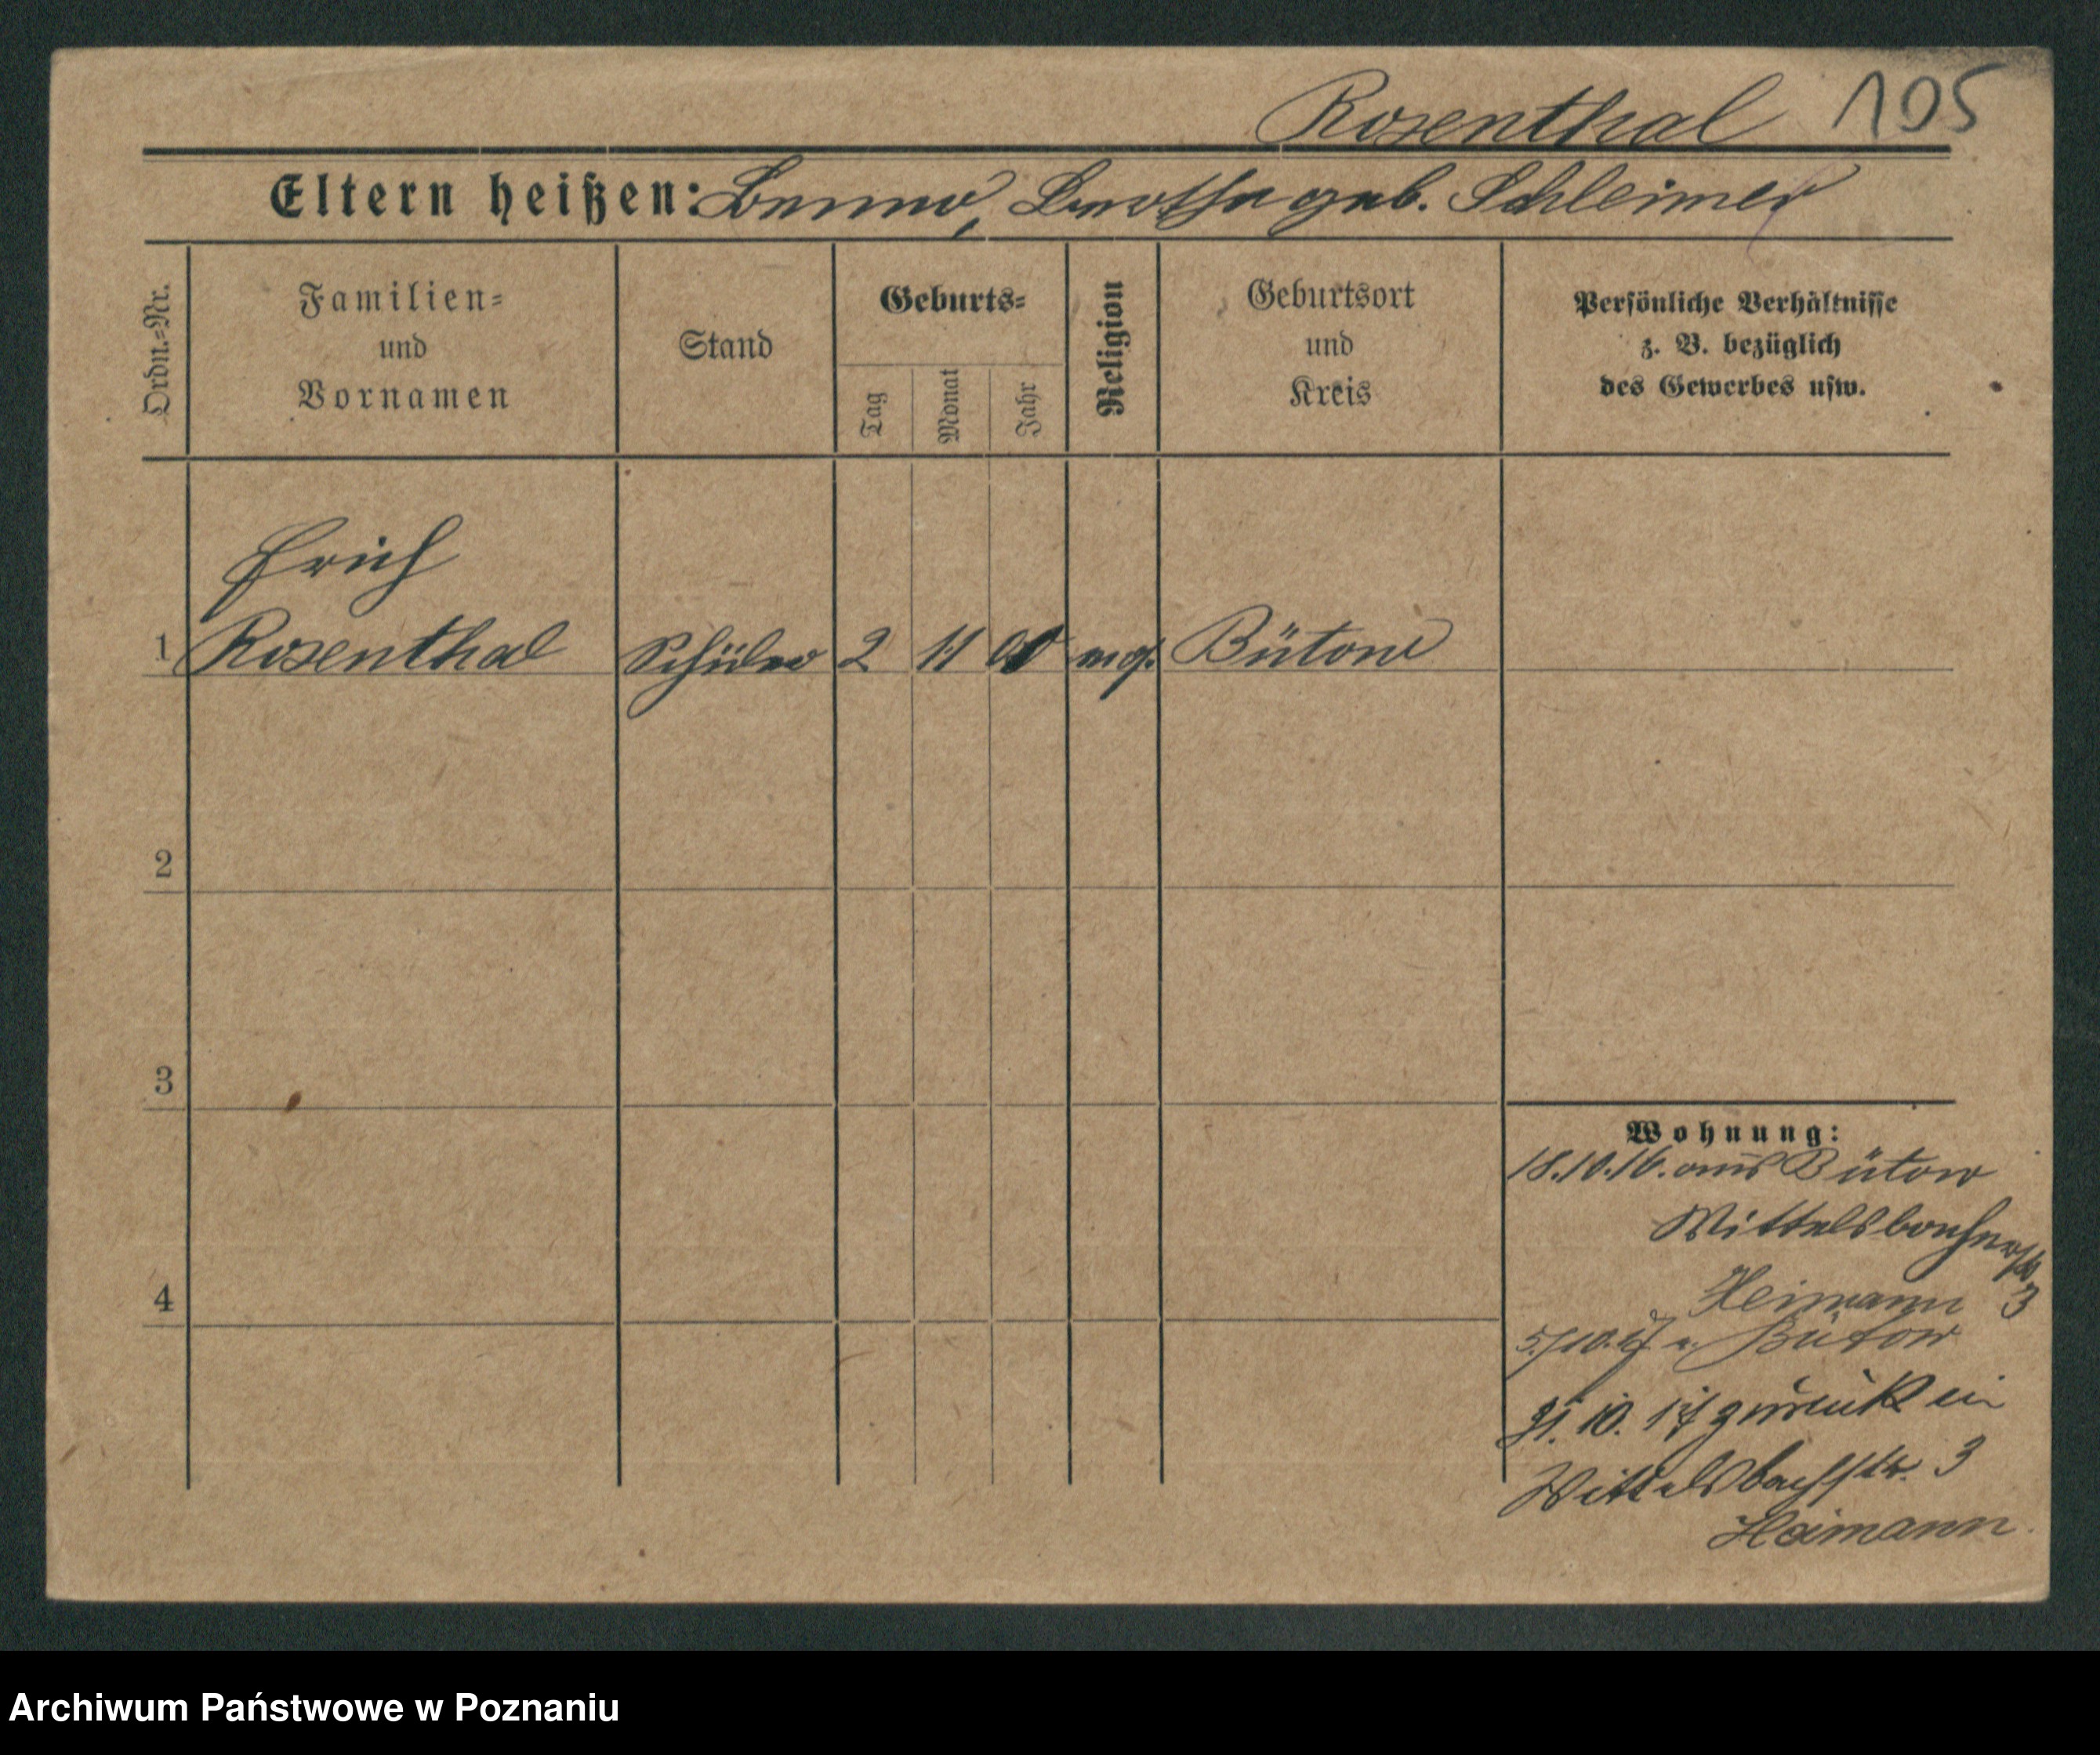 Rosenthal 105
Eltern heißen: Benno, Bertha geb. Schleimer
Ordn.=Nr.
Familien=
und
Vornamen
Stand
Geburts=
Tag
Monat
Jahr
Religion
Geburtsort
und
Kreis
Persönliche Verhältnisse
z. B. bezüglich
des Gewerbes usw.
Erich
1 Rosenthal Schüler 2 11 Bütow
2
3
4
Wohnung:
18.10.16. aus Bütow
Wittelsbacherstr
Heimann 3
5./10.17. n. Bütow
10. 17 zurück in
Wittelsbachstr. 3
Heimann.
Archiwum Państwowe w Poznaniu